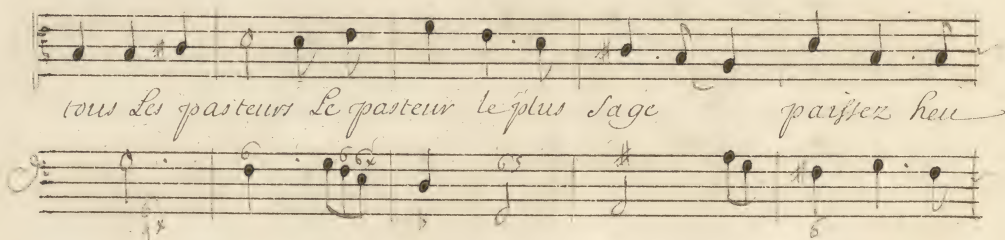 tous Les pasteurs Le pasteur le plus Sage paissez heu
6 6 6x 6 5
6 4x 6 6